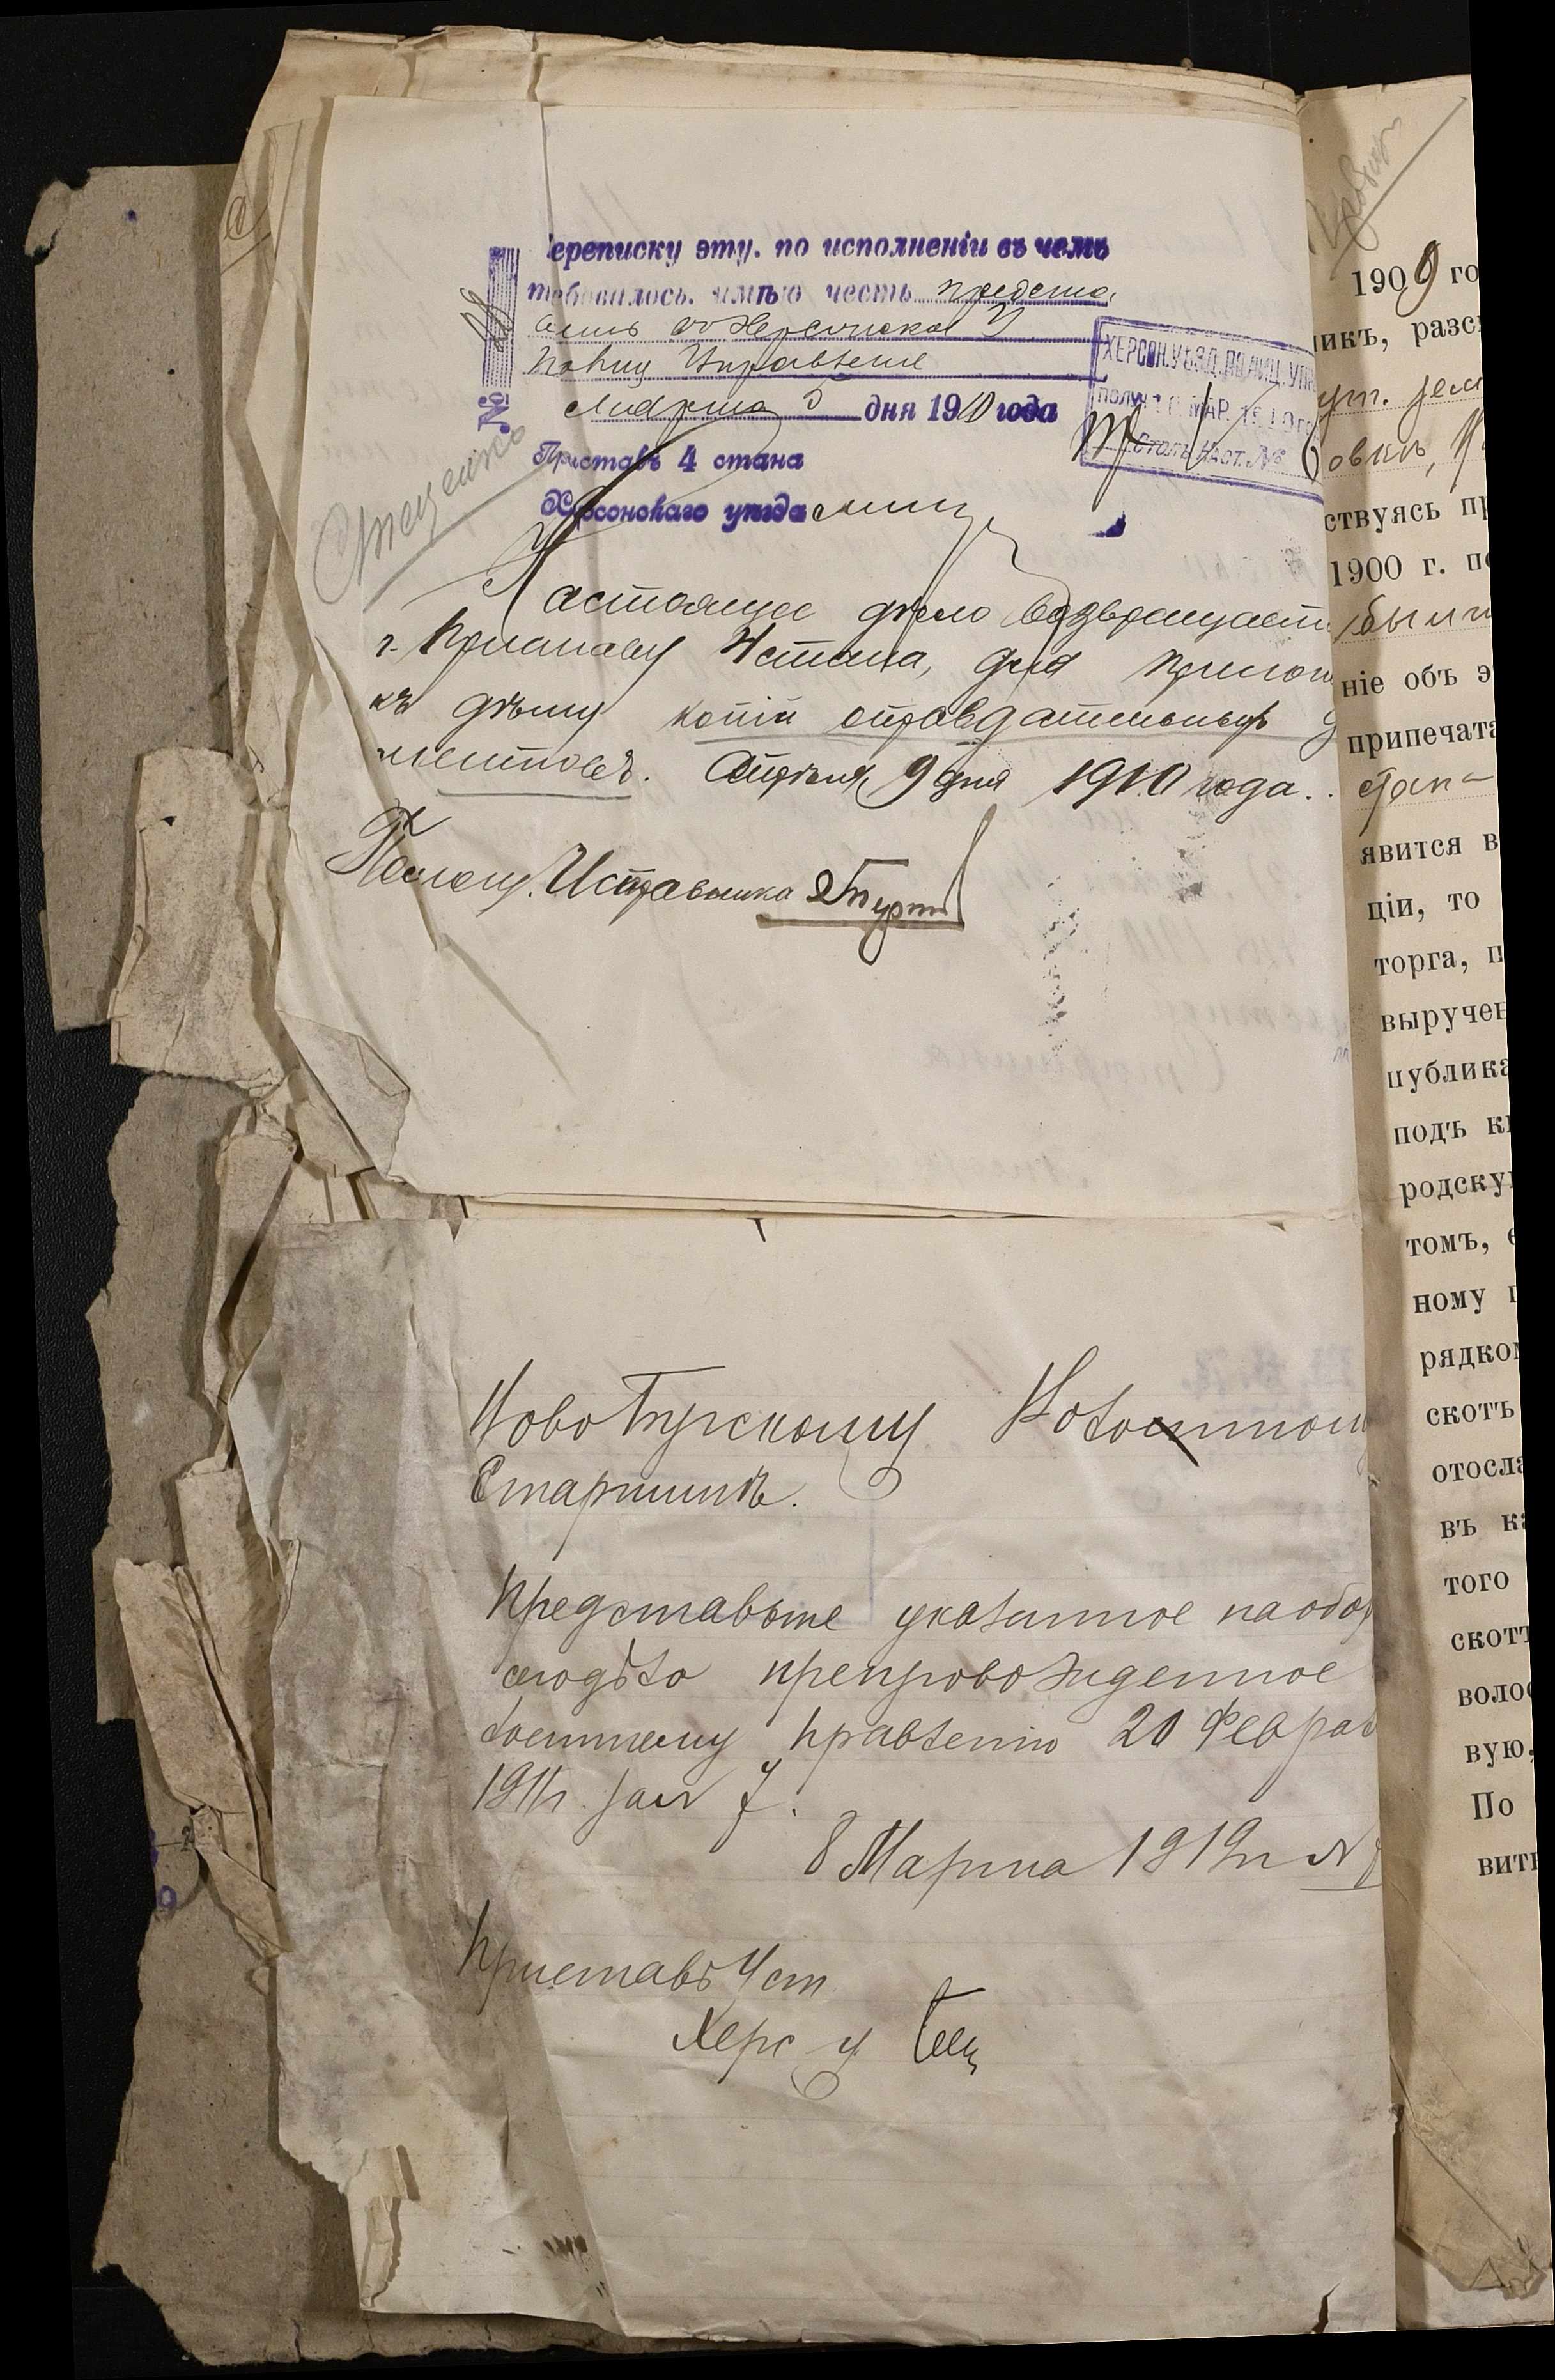 ереписку эту. по исполненіи въ чемъ
требовалось. имѣю честь предста
вить въ Херсонское У
Полиц Управленіе
Марта 5 дня 1910 года
№
Приставъ 4 стана
Херсонскаго уѣзда
ХЕРСОН.УѢЗД.ПОЛИЦ.УПР
ПОЛУЧ МАР. 1910 г
Столъ Наст. №
Настоящее дѣло возвращаетъ
г. Приставу 4 стана, для прилож
къ дѣлу копій оправдательныхъ д
ментовъ. Апрѣля 9 дня 1910 года.
Помощ. Исправника
Ново Бугскому Волостному
Старшинѣ.
Представьте указанное на обор
сего дѣло препровожденное
лостному правленію 20 Феврал
1911г. за № 7.
8 Марта 1912г №
Приставъ 4 ст
Херс у
1909 го
икъ, разс
ут. зем
овкѣ,
ствуясь пр
1900 г. по
были
ніе объ э
припечата
явится в
ціи, то
торга, п
выручен
публика
подъ к
родску
томъ, е
ному п
рядком
скотъ
отосла
въ ка
того
скотъ
волос
вую,
По
вити